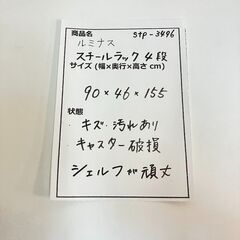 商品名 stp-3496
ルミナス
スチールラック 4段
サイズ (幅×奥行×高さ cm)
90×46×155
状態
・キズ・汚れあり
・キャスター破損
シェルフが頑丈